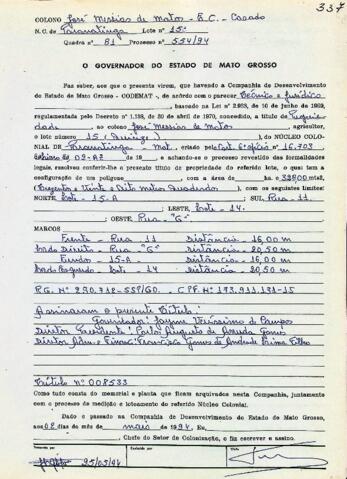 337
COLONO José Messias de Matos - B.C. - Casado
N. C. de Paranatinga Lote nº 15
Quadra nº 81 Processo nº 554/94
O GOVERNADOR DO ESTADO DE MATO GROSSO
Faz saber, aos que a presente virem, que havendo a Companhia de Desenvolvimento
do Estado de Mato Grosso - CODEMAT -, de acôrdo com o parecer Técnico e Jurídico
, baseado na Lei nº 2.933, de 10 de junho de 1969,
regulamentada pelo Decreto nº 1.138, de 30 de abril de 1970, concedido, a título de Proprie
dade ao colono José Messias de Matos, agricultor,
o lote número 15 (quinze) do NÚCLEO COLO-
NIAL DE Paranatinga - Mat. criado pela nº 16.703
02-AZ de 19 , e achando-se o processo revestido das formalidades
legais, resolveu conferir-lhe o presente título de propriedade do referido lote, o qual tem a
configuração de um polígono , com a área de ha. 328,00 mts2,
(Trezentos e Vinte e Oito metros Quadrados), com os seguintes limites:
NORTE: Lote - 15-A SUL: Rua - 11
LESTE: Lote - 14.
OESTE: Rua - "G"
MARCOS
Frente - Rua 11 Distância - 16,00 m
Lado Direito - Rua "G" Distância - 20,50 m
Fundo - 15-A Distância - 16,00 m
Lado Esquerdo - Lote - 14 Distância - 20,50 m
R.G. Nº 290.712-SSP/GO. C.P.F. Nº 193.911.131-15
Assinaram o presente Título:
Governador: Jayme Veríssimo de Campos
Diretor Presidente: Carlos Augusto de Arruda Gomes
Diretor Adm. e Financ: Francisco Gomes de Andrade Lima Filho
Título Nº 008533
Como tudo consta do memorial e planta que ficam arquivados nesta Companhia, juntamente
com o processo de medição e loteamento do referido Núcleo Colonial.
Dado e passado na Companhia de Desenvolvimento do Estado de Mato Grosso,
aos 02 dias do mês de maio de 1994. Eu,
, Chefe do Setor de Colonização, o fiz escrever e assino.
25/05/94